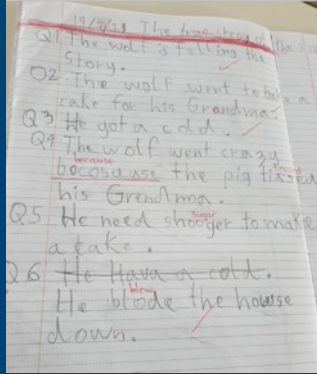 The true story of the
Q1 The wolf is telling the
story.
Q2 The wolf went to bake a
cake for his Grandma.
Q3 He got a cold.
Q4 The wolf went crazy
because
bocosause the pig
his Grandma.
Q5 He need shooger to make
sugar
a cake.
Q6 He Hava a cold.
He blode the howse
blew
down.